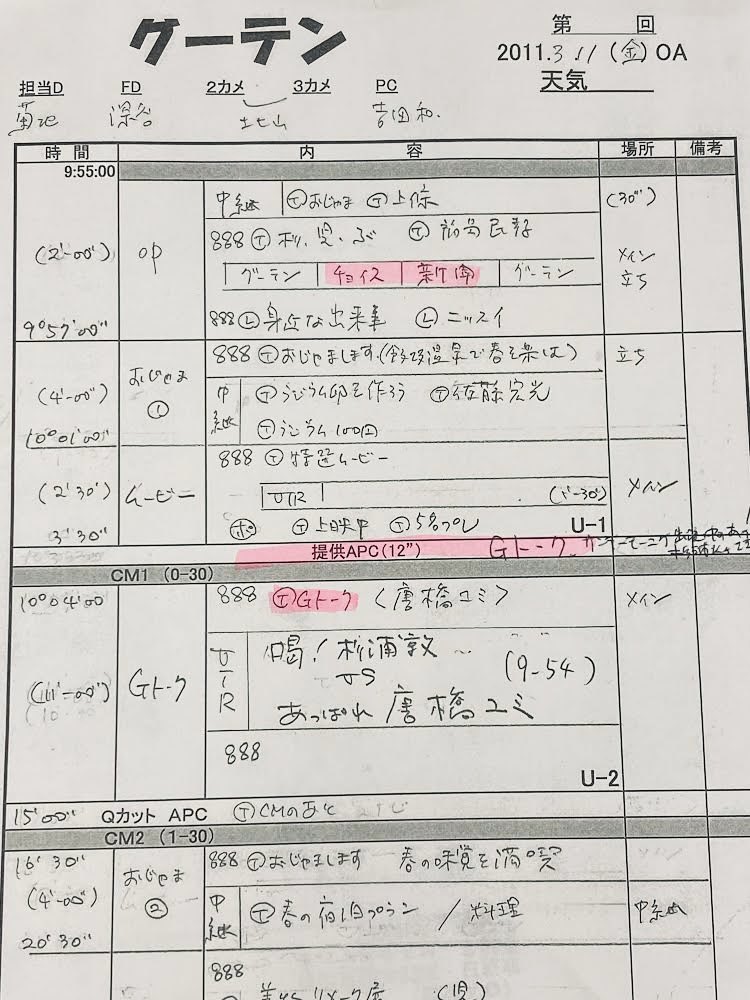 グーテン
第 回
2011.3.11(金)OA
天気
担当D FD 2カメ 3カメ PC
菊地 深谷 北山 吉田和.
時間 内容 場所 備考
9:55:00
中継 Ⓣおじゃま Ⓣ上條 (30")
(2'-00") OP 888 Ⓣ
グーテン チョイス 新聞 グーテン メイン 立ち
9°57'00" 888 Ⓛ身近な出来事 Ⓛニッスイ
888 Ⓣおじゃまします。 立ち
(4'-00") おじゃま① 中継 Ⓣうじうむ卵を作ろう Ⓣ佐藤宏光
10°01'00"
888 Ⓣ特選ムービー
(2'30") ムービー VTR (1'-30) メイン
3'30" Ⓣ上映中 Ⓣ5名プレ U-1
提供APC(12") Gトーク
CM1 (0-30)
10°04'00 888 ⓉGトーク <唐橋ユミ> メイン
Gトーク VTR 喝!松浦敦 (9-54)
VS
あっぱれ 唐橋ユミ
888
U-2
15'00" Qカット APC ⓉCMのあと
CM2 (1-30)
16'30" 888 Ⓣおじゃまします 春の味覚を満喫
(4'-00") おじゃま② 中継 Ⓣ春の宿泊プラン / 料理 中継
20'30"
888